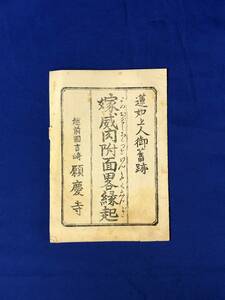 蓮如上人御舊跡
嫁威肉附面畧縁起
越前國吉崎 願慶寺